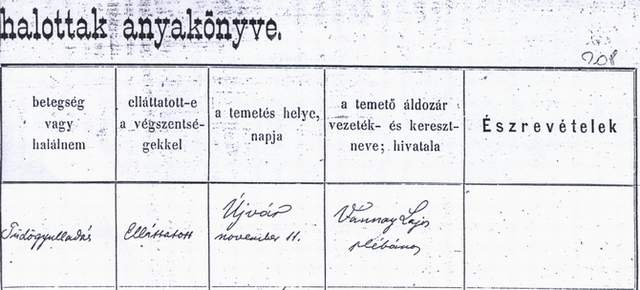 halottak anyakönyve.
208
betegség
vagy
halálnem
elláttatott-e
a végszentsé-
gekkel
a temetés helye,
napja
a temető áldozár
vezeték- és kereszt-
neve; hivatala
Észrevételek
Tüdőgyulladás
Elláttatott
Újvár
november 11.
Vánnay Lajos
plébános